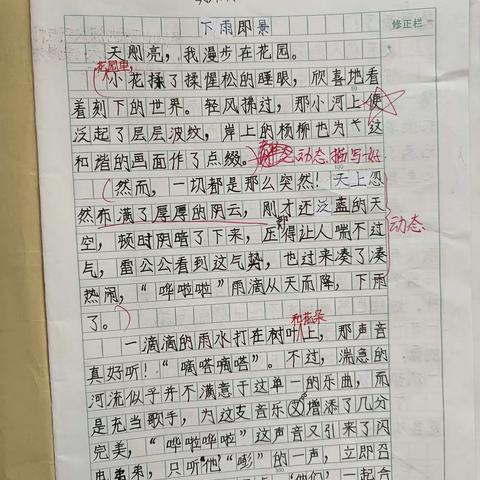 修正栏
下雨即景
天刚亮，我漫步在花园。
花园里，
小花揉了揉惺松的睡眼，欣喜地看
着刻下的世界。轻风拂过，那小河上便
泛起了层层波纹，岸上的杨柳也为这
和谐的画面作了点缀。
动态描写好
然而，一切都是那么突然！天上忽
然布满了厚厚的阴云，刚才还泛蓝的天
动态
空，顿时阴暗了下来，压得让人喘不过
气，雷公公看到这气势，也过来凑了凑
热闹，“哗啦啦”雨滴从天而降，下雨
了。
和花朵
一滴滴的雨水打在树叶上，那声音
真好听！“嘀嗒嘀嗒”。不过，湍急的
河流似乎并不满意于这单一的乐曲，而
是充当歌手，为这支音乐又增添了几分
完美，“哗啦哗啦”这声音又引来了闪
电弟弟，只听“他”“嘭”的一声，立即召